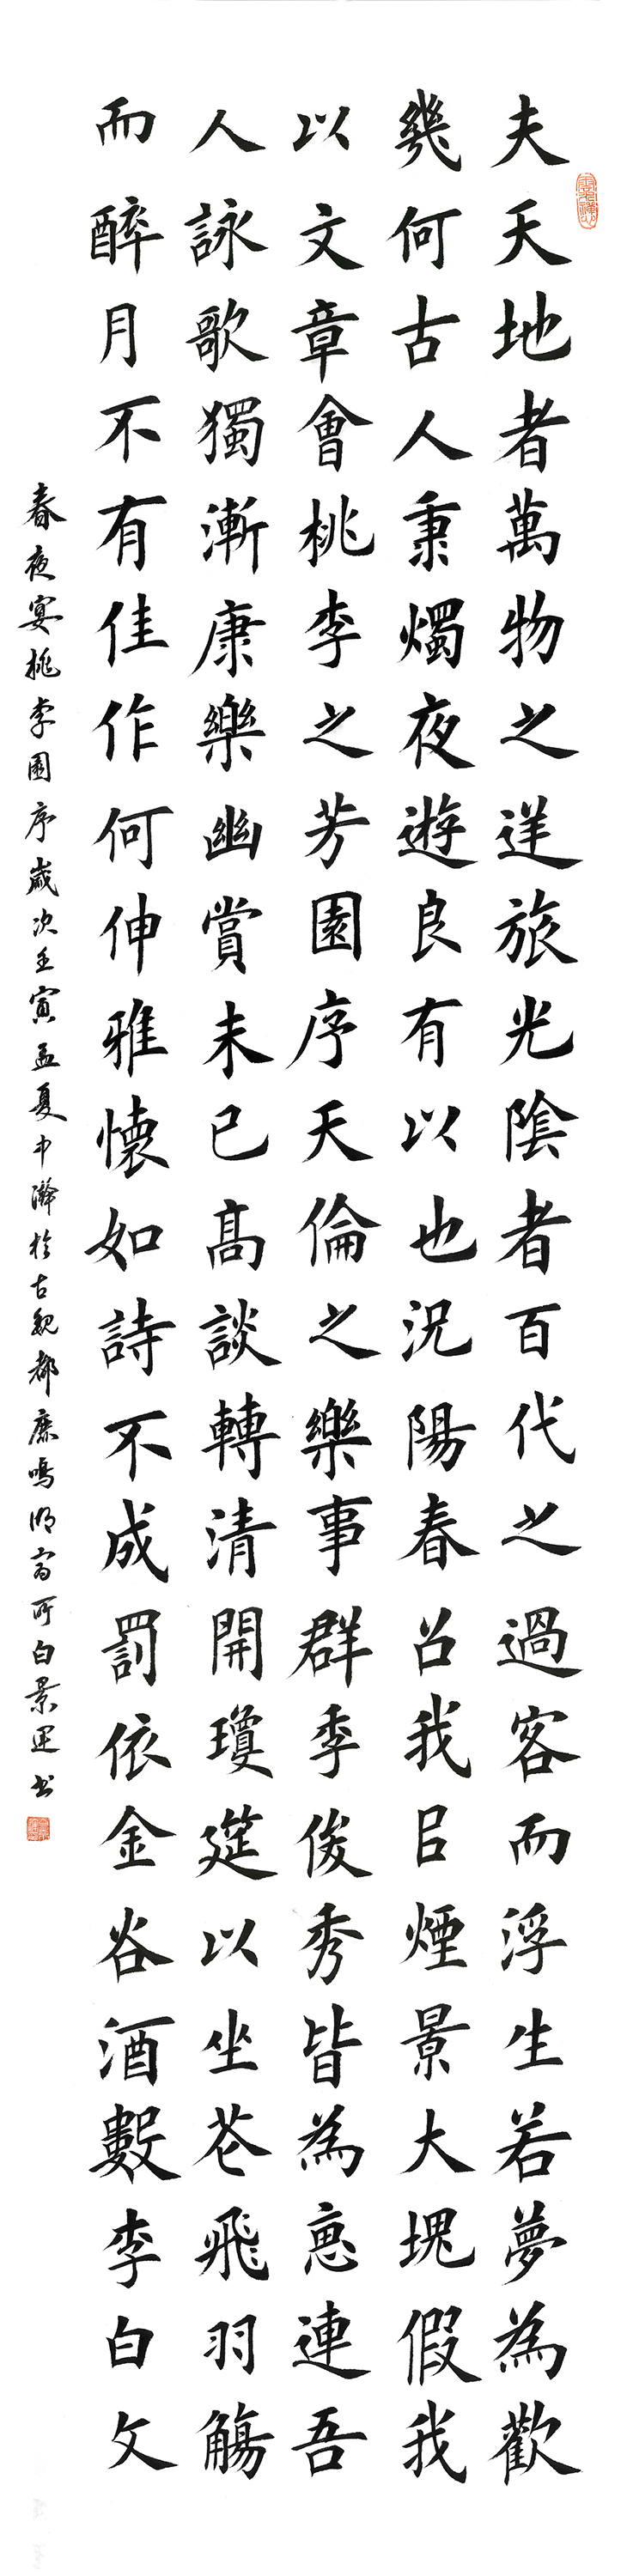 夫天地者萬物之逆旅光陰者百代之過客而浮生若夢為歡
幾何古人秉燭夜遊良有以也況陽春召我㠯煙景大塊假我
以文章會桃李之芳園序天倫之樂事群季俊秀皆為惠連吾
人詠歌獨漸康樂幽賞未已髙談轉清開瓊筵以坐花飛羽觴
而醉月不有佳作何伸雅懷如詩不成罰依金谷酒數李白文
春夜宴桃李園序歲次壬寅孟夏中澣於古魏都鹿鳴寓所白景運书